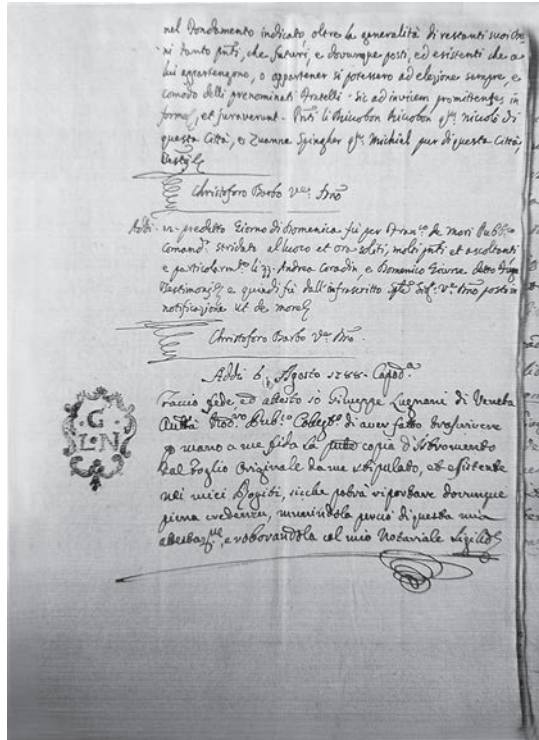 nel Fondamento indicato oltre la generalità di restanti suoi be:
ni tanto pñti, che futuri, e dovunque posti, ed esistenti che a
lui appartengono, o appartener si potessero ad elezione sempre e
comodo delli prenominati Fratelli. Sic ad invicem promittentes in
forma, et juraverunt. Pñti li Riccobon Riccobon qm Nicolò di
questa Città, e Zuanne Spingher qm Michiel pur di questa Città,
Testij
Christoforo Barbo V.
Addì predetto Giorno di Domenica fù per Fran.co de Mori Pubb.co
Comand.r stridato al luoco et ora soliti, molti pñti et ascoltanti
e particolarm.te li Andrea Coradin, e Domenico Giursa detto
Testimonij e quindi fù dall'infrascritto V. posta in
notificazione ut de more
Christoforo Barbo V.
Addì 6 Agosto 1788. Capod.a
Faccio fede, ed attesto io Giuseppe Lugnani di Veneta
Autt.à Nod.ro Pub.co Colleg.to di aver fatto trascrivere
da mano a me fida la copia d'Istromento
dal Foglio Originale da me stipulato, et esistente
nei miei Rogiti, sicche potrà riportare dovunque
piena credenza, munindola perciò di questa mia
attestaz.ne, e roborandola col mio Notariale Sigillo
G
L. N